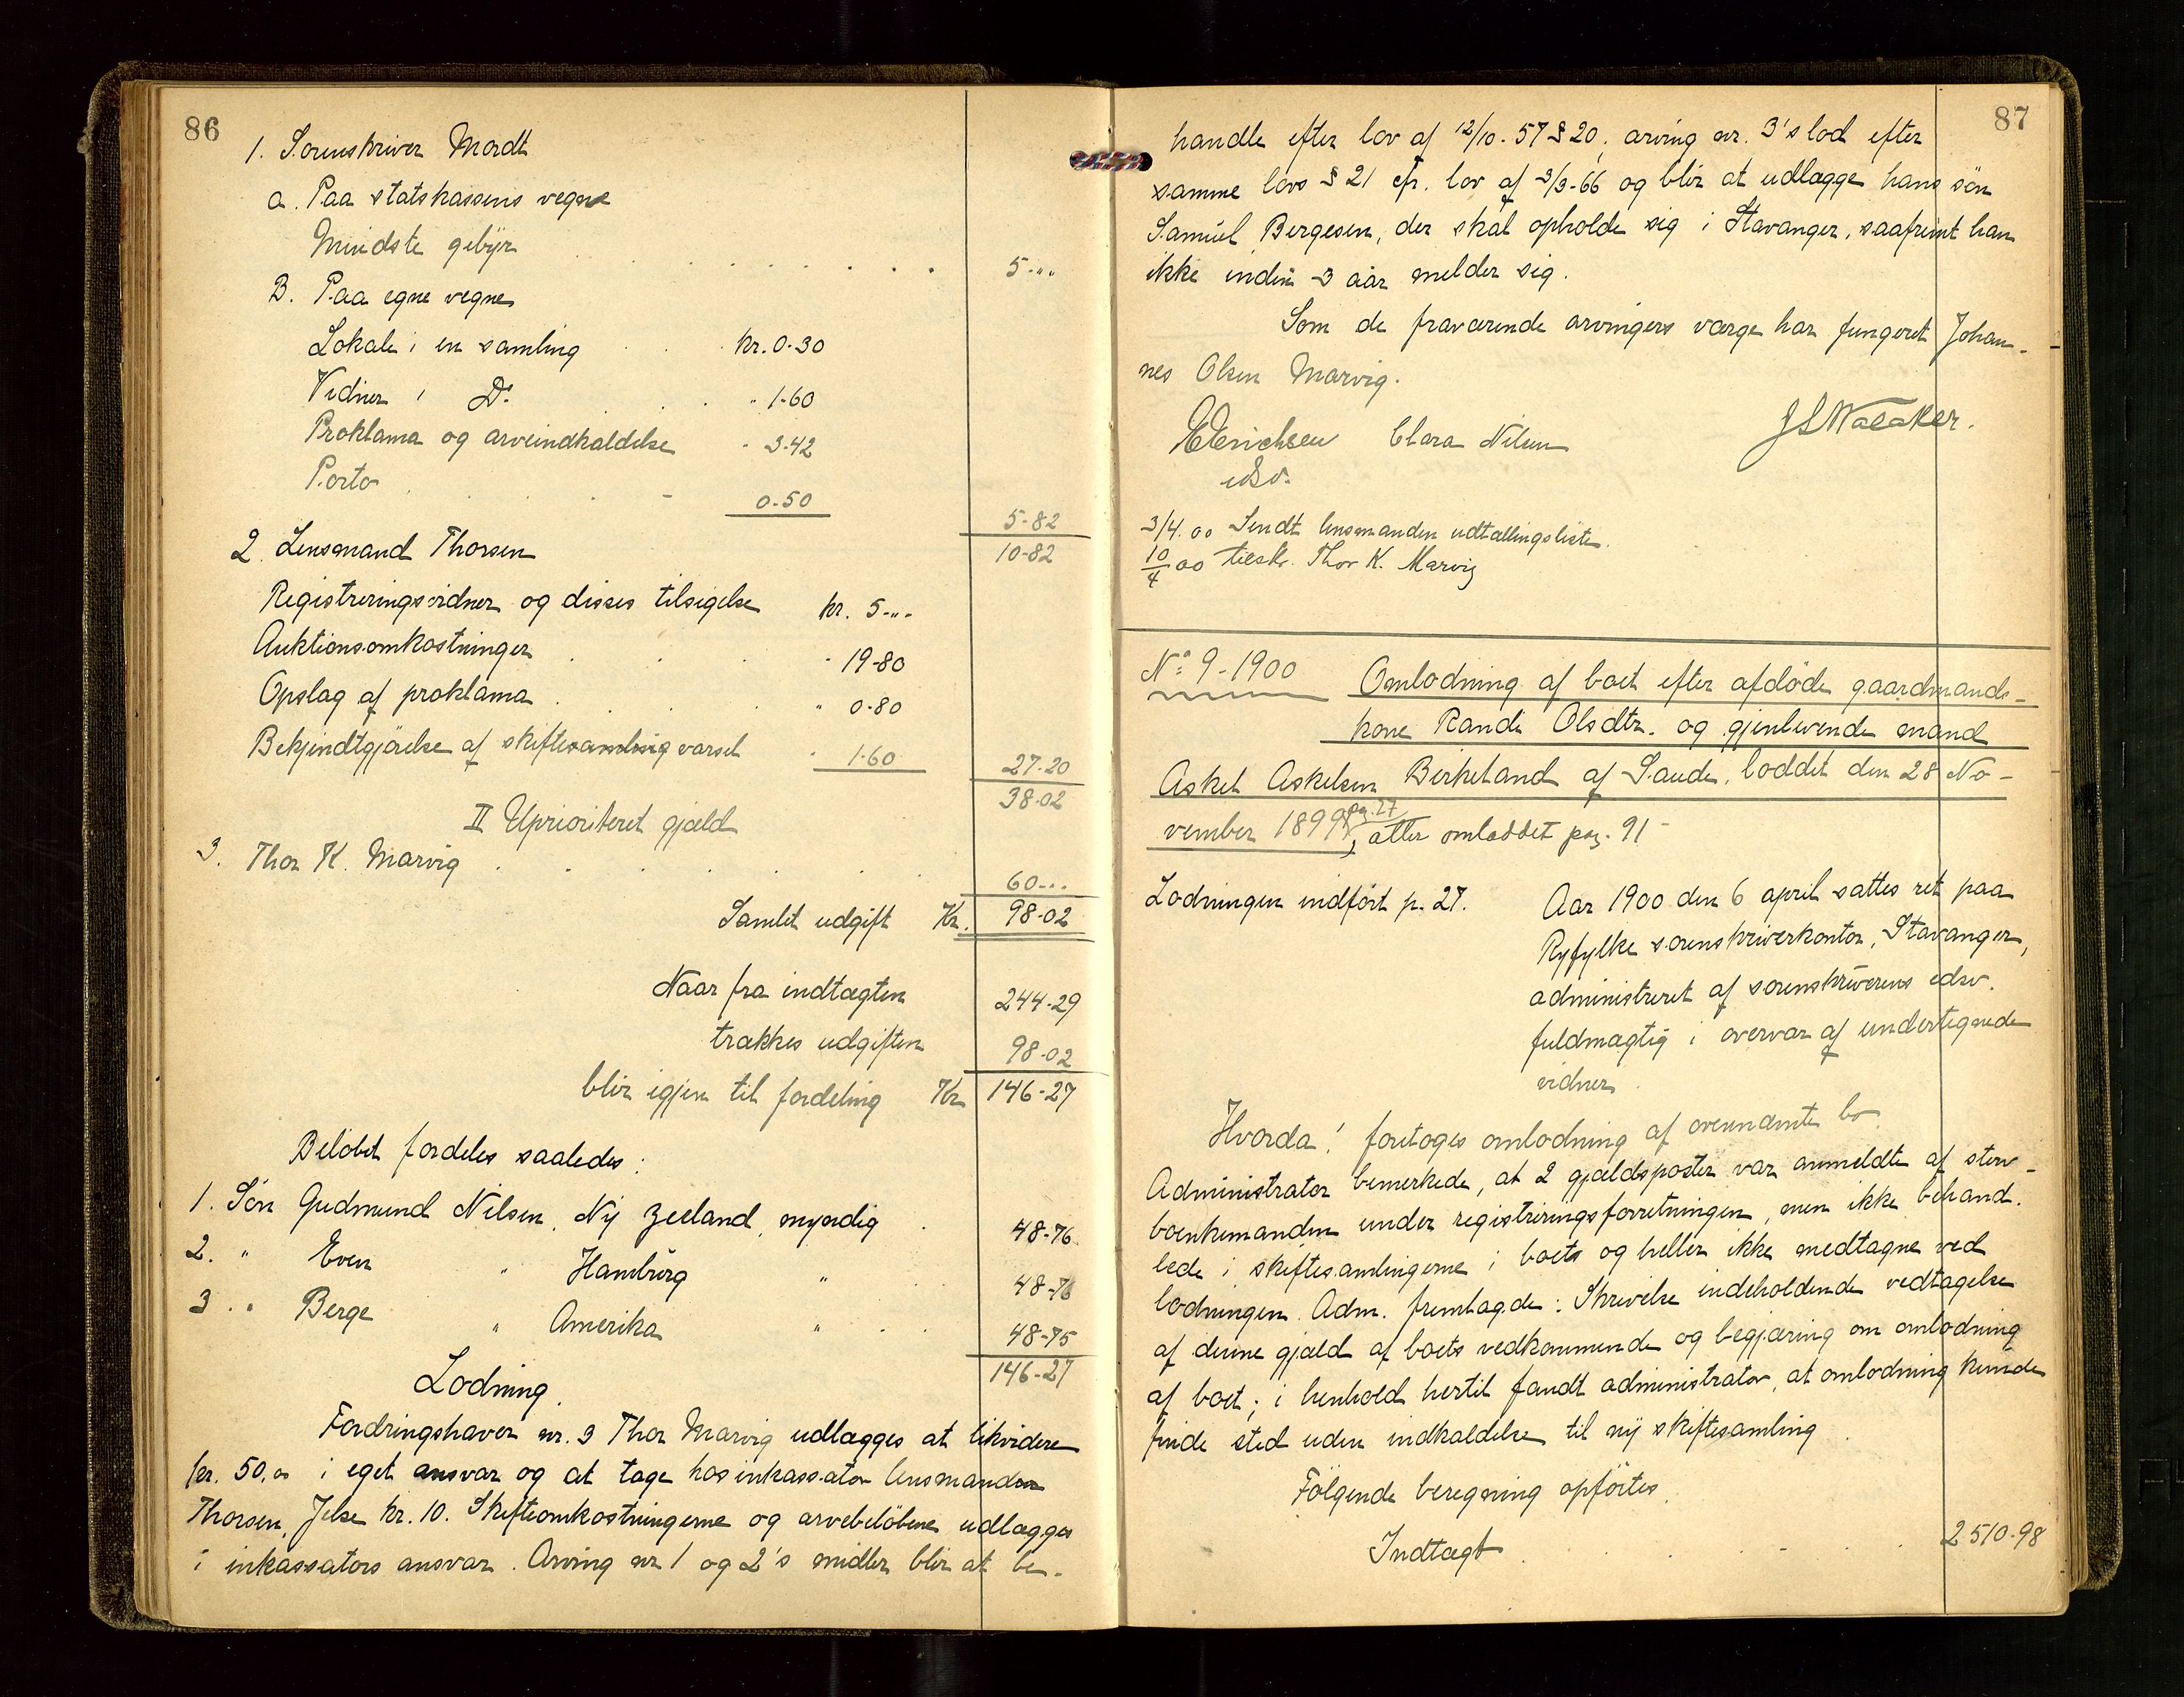 86
1. Sorenskriver Mordt
a. Paa statskassens vegne
Mindste gebÿr . . . . . . . 5-""
B. Paa egne vegne
Lokale i en samling . . kr. 0-30
Vidner i Do . . " 1-60
Proklama og arveindkaldelse " 3-42
Porto . . . . 0-50
5-82
10-82
2. Lensmand Thorsen
Registreringsvidner og disses tilsigelse kr. 5-"-
Auktionsomkostninger . . . " 19-80
Opslag af proklama . . . " 0-80
Bekjendtgjörelse af skiftesamling varsel " 1-60
27-20
38-02
II Uprioriteret gjæld
3. Thor K. Marvig . . . . . . 60-..
Samlet udgift Kr. 98-02
Naar fra indtægten 244-29
trækkes udgiften 98-02
blir igjen til fordeling Kr 146-27
Belöbet fordeles saaledes:
1. Sön Gudmund Nilsen, Nÿ Zeeland, mÿndig . 48-76
2. " Even " Hamburg " . . 48-76
3. " Berge " Amerika " . . 48-75
146-27
Lodning.
Fordringshaver nr. 3 Thor Marvig udlægges at likvidere
kr. 50,00 i eget ansvar og at tage hos inkassator lensmanden
Thorsen, Jelse kr. 10. Skifteomkostningerne og arvebelöbene udlægges
i inkassators ansvar. Arving nr 1 og 2's midler blir at be-
87
handle efter lov af 12/10-57 § 20, arving nr. 3's lod efter
samme lovs § 21 cfr. lov af 3/3-66 og blir at udlægge hans sön
Samuel Bergesen, der skal opholde sig i Stavanger, saafremt han
ikke inden 3 aar melder sig.
Som de fraværende arvingers værge har fungeret Johan-
nes Olsen Marvig.
Erichsen Clara Nilsen JSWalaker.
edsv.
3/4.00 Sendt lensmanden udtællingsliste.
10/4 00 tilskr. Thor K. Marvig
No 9-1900 Omlodning af boet efter afdöde gaardmands-
kone Rande Olsdtr. og gjenlevende mand
Askel Askelsen Birkeland af Saude, loddet den 28 No-
vember 1899 pag. 27, atter omloddet pag. 91-
Lodningen indfört p. 27.
Aar 1900 den 6 april sattes ret paa
Ryfylke sorenskriverkontor, Stavanger,
administreret af sorenskriverens edsv.
fuldmægtig i overvær af undertegnede
vidner.
Hvorda! foretoges omlodning af ovennævnte bo.
Administrator bemerkede, at 2 gjældsposter var anmeldte af sterv-
boenkemanden under registreringsforretningen, men ikke behand-
lede i skiftesamlingerne i boets og heller ikke medtagne ved
lodningen. Adm. fremlagde: Skrivelse indeholdende vedtagelse
af denne gjæld af boets vedkommende og begjæring om omlodning
af boet; i henhold hertil fandt administrator, at omlodning kunde
finde sted uden indkaldelse til nÿ skiftesamling.
Fölgende beregning opförtes.
Indtægt . . . . . . 2510-98